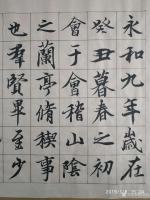 永和九年歲在
癸丑暮春之初
會于會稽山陰
之蘭亭脩禊事
也羣賢畢至少